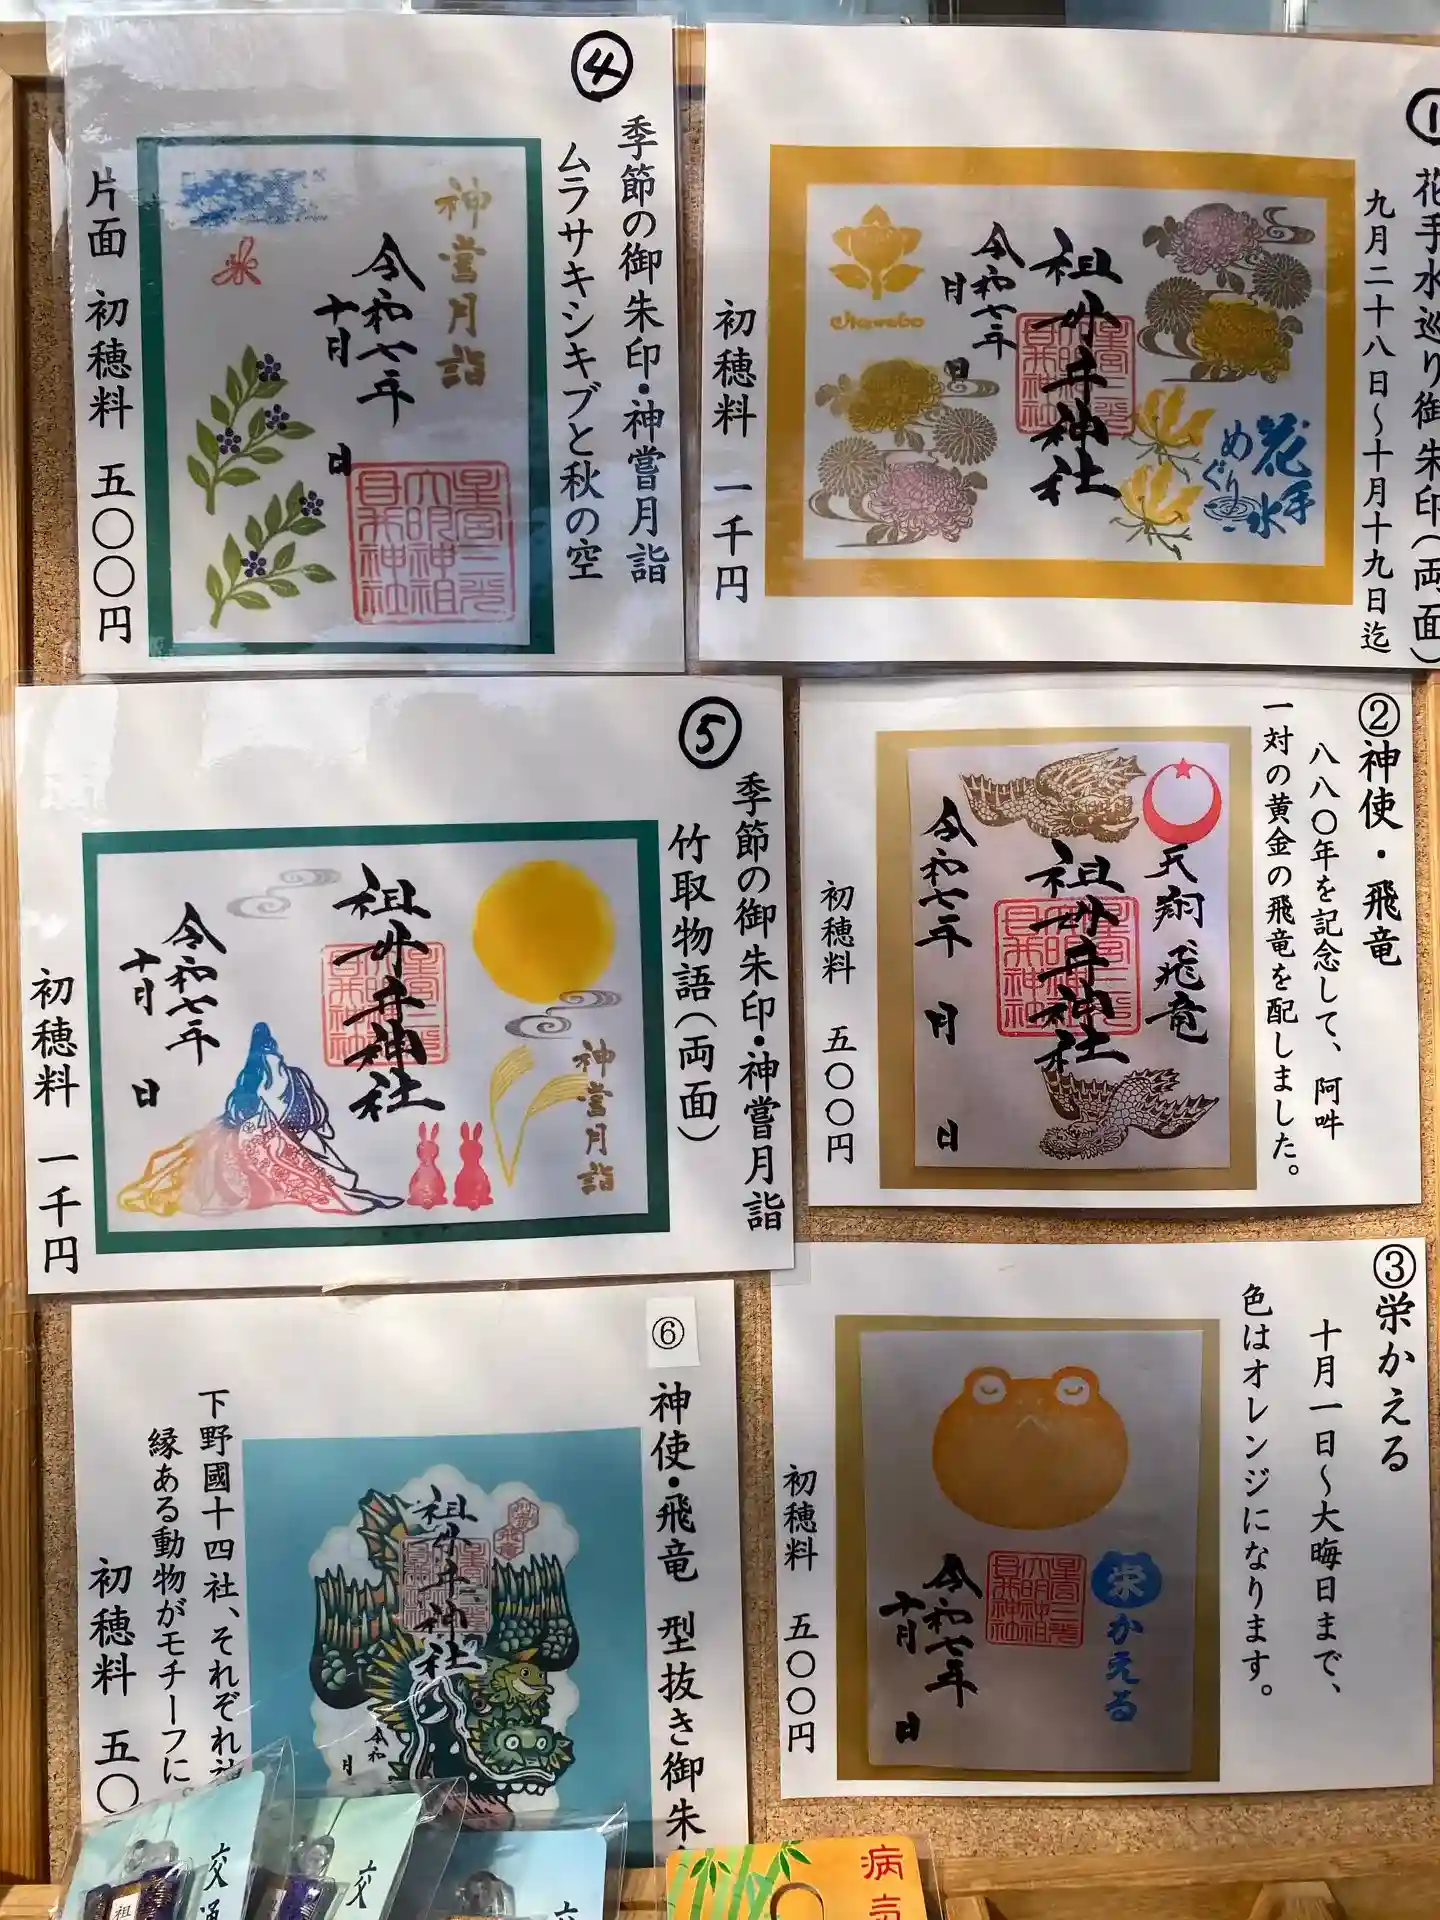 ①
花手水巡り御朱印(両面)
九月二十八日〜十月十九日迄
花手水
めぐり
祖母井神社
令和七年
月
日
初穂料 一千円
②神使・飛竜
八八〇年を記念して、阿吽
一対の黄金の飛竜を配しました。
天翔飛竜
祖母井神社
令和七年 月 日
初穂料 五〇〇円
③栄かえる
十月一日〜大晦日まで、
色はオレンジになります。
栄かえる
令和七年
十月 日
初穂料 五〇〇円
④
季節の御朱印・神嘗月詣
ムラサキシキブと秋の空
神嘗月詣
令和七年
十月 日
片面 初穂料 五〇〇円
⑤
季節の御朱印・神嘗月詣
竹取物語(両面)
神嘗月詣
祖母井神社
令和七年
十月 日
初穂料 一千円
⑥
神使・飛竜 型抜き御朱
祖母井神社
令和
月
下野國十四社、それぞれ
縁ある動物がモチーフに。
初穂料 五〇
交通
交
交
祖
病